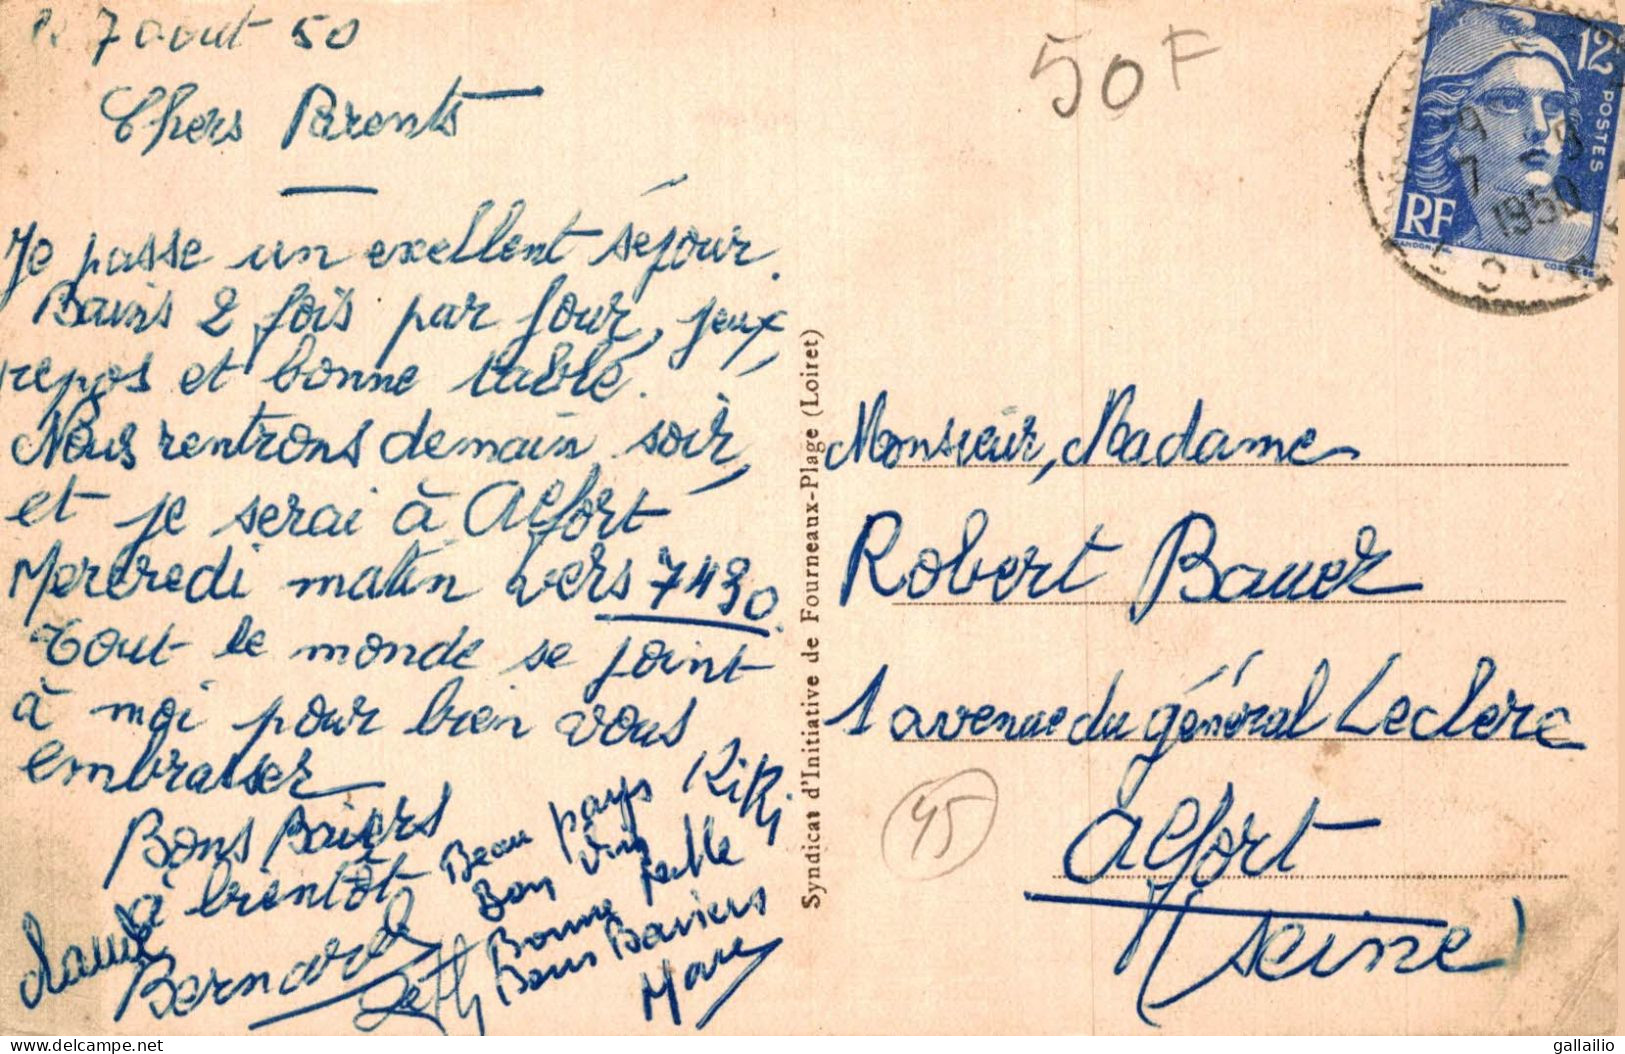 le 7 aout 50
Chers Parents
Je passe un excellent séjour.
Bains 2 fois par jour, jeux,
repos et bonne table.
Nous rentrons demain soir,
et je serai à Alfort
Mercredi matin vers 7h30.
Tout le monde se joint
à moi pour bien vous
embrasser
Bons Baisers
à bientôt
Bernard
Beau pays Kiki
Bon Vin
Bonne table
Bons Baisiers
Marc
Syndicat d'Initiative de Fourneaux-Plage (Loiret)
50F
12F
POSTES
RF
9 - 8
7
1950
Monsieur, Madame
Robert Bauer
1 avenue du général Leclerc
Alfort
(Seine)
45
gallailio